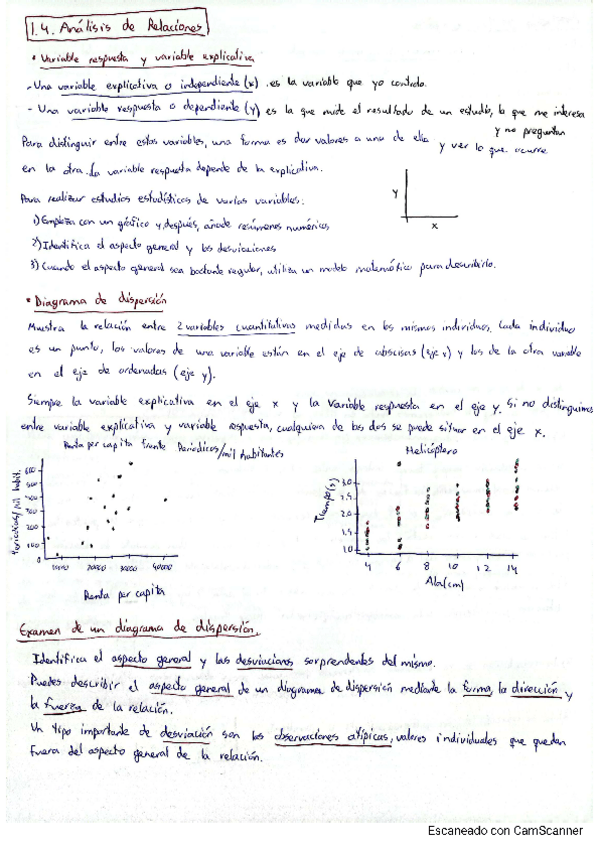 1.4. Análisis de Relaciones
• Variable respuesta y variable explicativa
- Una variable explicativa o independiente (x) es la variable que yo controlo.
- Una variable respuesta o dependiente (y) es la que mide el resultado de un estudio, lo que me interesa
y no preguntan
Para distinguir entre estas variables, una forma es dar valores a una de ella y ver lo que ocurre
en la otra. La variable respuesta depende de la explicativa.
Para realizar estudios estadísticos de varias variables:
y
x
1) Empieza con un gráfico y después, añade resúmenes numéricos
2) Identifica el aspecto general y las desviaciones
3) Cuando el aspecto general sea bastante regular, utiliza un modelo matemático para describirlo.
• Diagrama de dispersión
Muestra la relación entre 2 variables cuantitativas medidas en los mismos individuos. Cada individuo
es un punto, los valores de una variable están en el eje de abscisas (eje x) y los de la otra variable
en el eje de ordenadas (eje y).
Siempre la variable explicativa en el eje x y la variable respuesta en el eje y. Si no distinguimos
entre variable explicativa y variable respuesta, cualquiera de las dos se puede situar en el eje x.
Renta per capita frente Periodicos/mil habitantes
Periodicos/mil habit.
600
500
400
300
200
100
20000 30000 40000
Renta per capita
Helicóptero
Tiempo(s)
3.0
2.5
2.0
1.5
1.0
4 6 8 10 12 14
Ala(cm)
Examen de un diagrama de dispersión.
Identifica el aspecto general y las desviaciones sorprendentes del mismo.
Puedes describir el aspecto general de un diagrama de dispersión mediante la forma, la dirección y
la fuerza de la relación.
Un tipo importante de desviación son las observaciones atípicas, valores individuales que quedan
fuera del aspecto general de la relación.
Escaneado con CamScanner